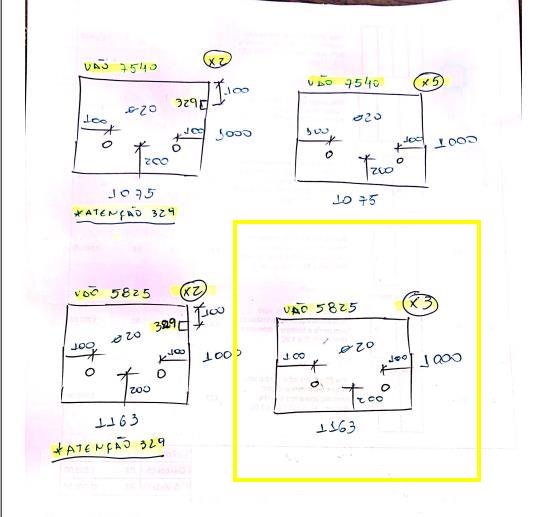 VÃO 7540 X2
100
329
ø20
100
100
1000
200
1075
*ATENÇÃO 329
VÃO 7540 X5
ø20
100
100
1000
200
1075
VÃO 5825 X2
100
329
ø20
100
100
1000
200
1163
*ATENÇÃO 329
VÃO 5825 X3
ø20
100
100
1000
200
1163